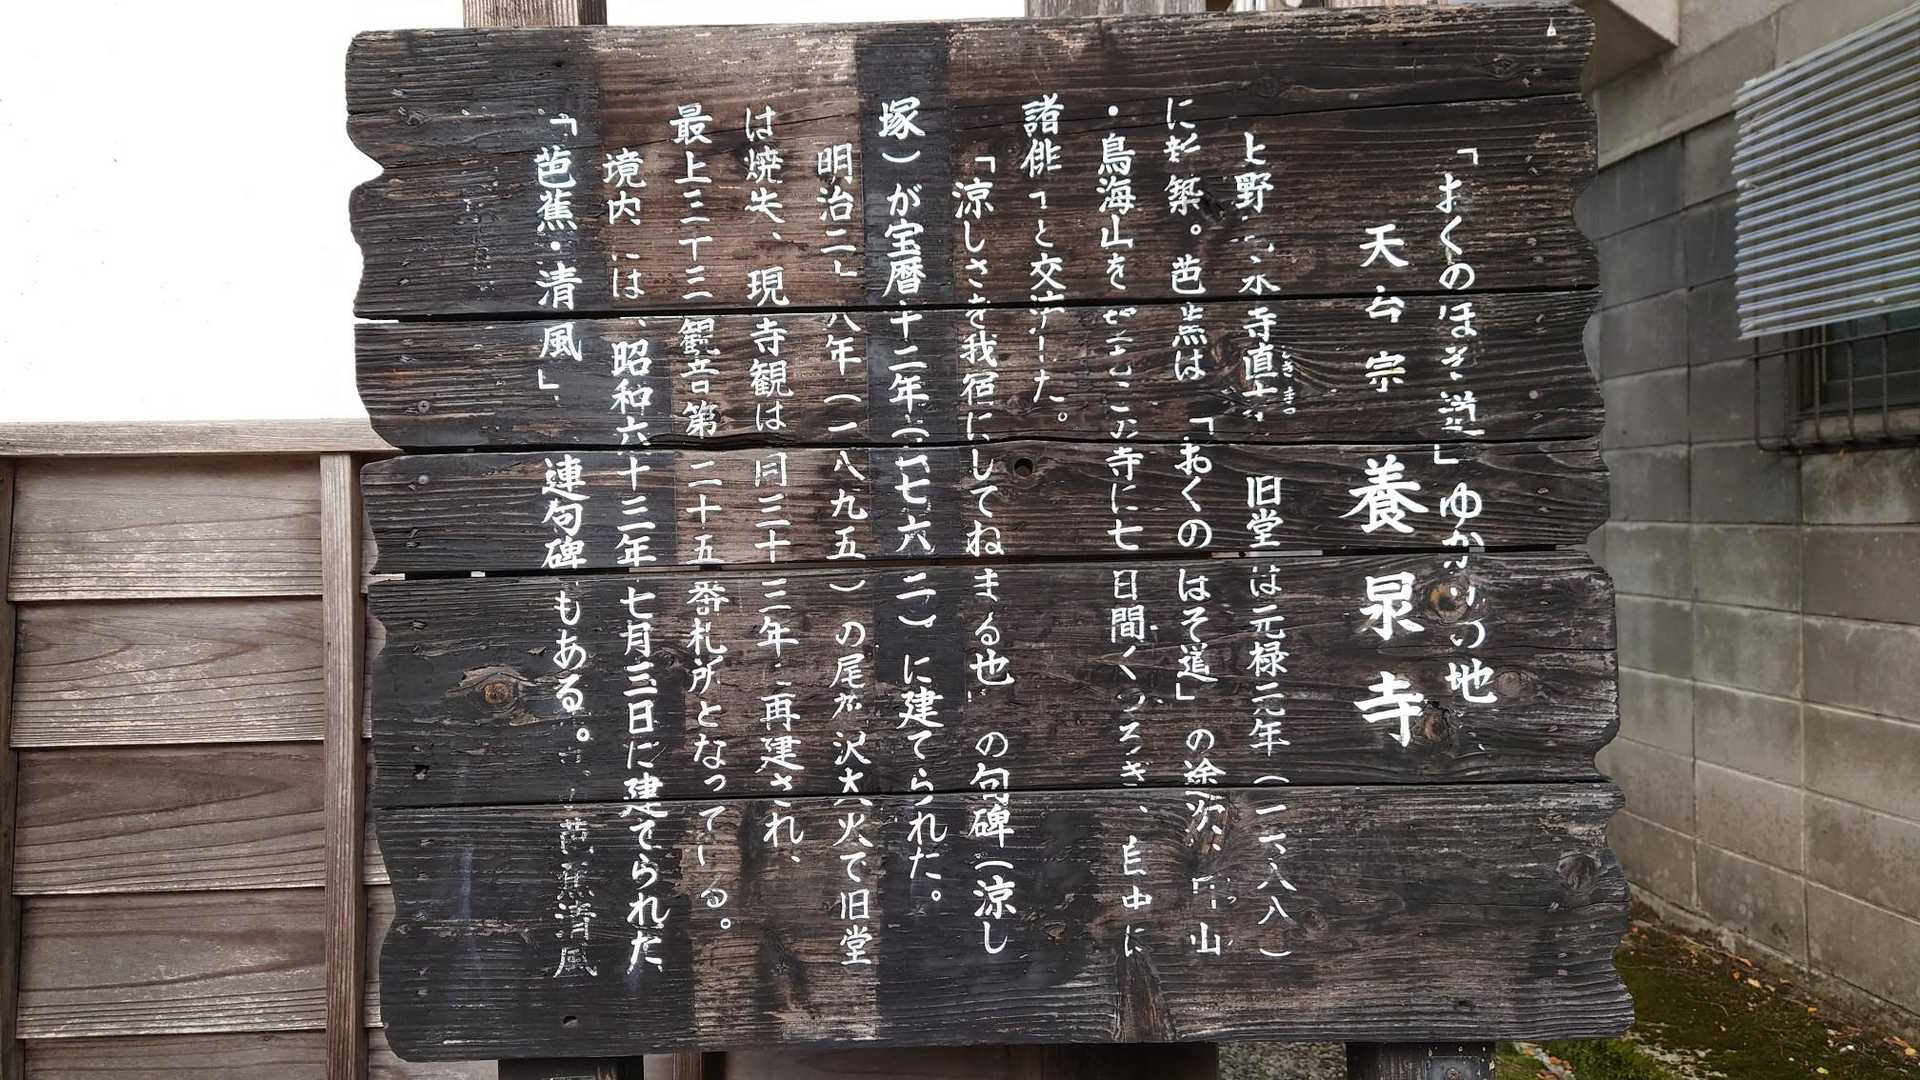 「おくのほそ道」ゆかりの地
天台宗 養泉寺
上野 寺直末 旧堂は元禄元年(一六八八)
に新築。芭蕉は「おくのほそ道」の途次、月山
・鳥海山を この寺に七日間くつろぎ、
諸俳 と交流した。
「涼しさを我宿にしてねまる也」の句碑(涼し
塚)が宝暦十二年(一七六二)に建てられた。
明治二十八年(一八九五)の尾花沢大火で旧堂
は焼失、現寺観は同三十三年再建され、
最上三十三観音第二十五番札所となっている。
境内には、昭和六十三年七月三日に建てられた
「芭蕉・清風」連句碑もある。
芭蕉清風